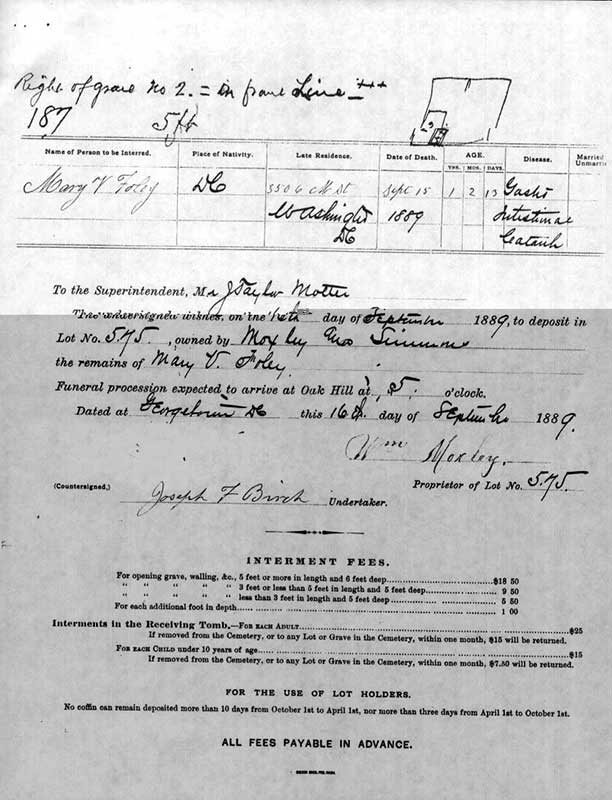 Right of grave No 2. = in front Line
187 5 ft
Name of Person to be Interred. Place of Nativity. Late Residence. Date of Death. AGE. Disease. Married
YRS. MOS. DAYS. Unmarri
Mary V Foley DC 3506 M St Sept 15 1 2 13 Gastro
Washington 1889 Intestinal
DC Catarrh
To the Superintendent, Mr J Taylor Motter
The undersigned wishes, on the day of September 1889, to deposit in
Lot No. 575, owned by Moxley Simmons
the remains of Mary V. Foley.
Funeral procession expected to arrive at Oak Hill at 5 o'clock.
Dated at Georgetown DC this 16th day of September 1889.
Wm Moxley.
(Countersigned,) Proprietor of Lot No. 575.
Joseph F Birch Undertaker.
INTERMENT FEES.
For opening grave, walling, &c., 5 feet or more in length and 6 feet deep $18 50
" " " " " 3 feet or less than 5 feet in length and 5 feet deep 9 50
" " " " " less than 3 feet in length and 5 feet deep 5 50
For each additional foot in depth 1 00
Interments in the Receiving Tomb.—FOR EACH ADULT $25
If removed from the Cemetery, or to any Lot or Grave in the Cemetery, within one month, $15 will be returned.
FOR EACH CHILD under 10 years of age $15
If removed from the Cemetery, or to any Lot or Grave in the Cemetery, within one month, $7.50 will be returned.
FOR THE USE OF LOT HOLDERS.
No coffin can remain deposited more than 10 days from October 1st to April 1st, nor more than three days from April 1st to October 1st.
ALL FEES PAYABLE IN ADVANCE.